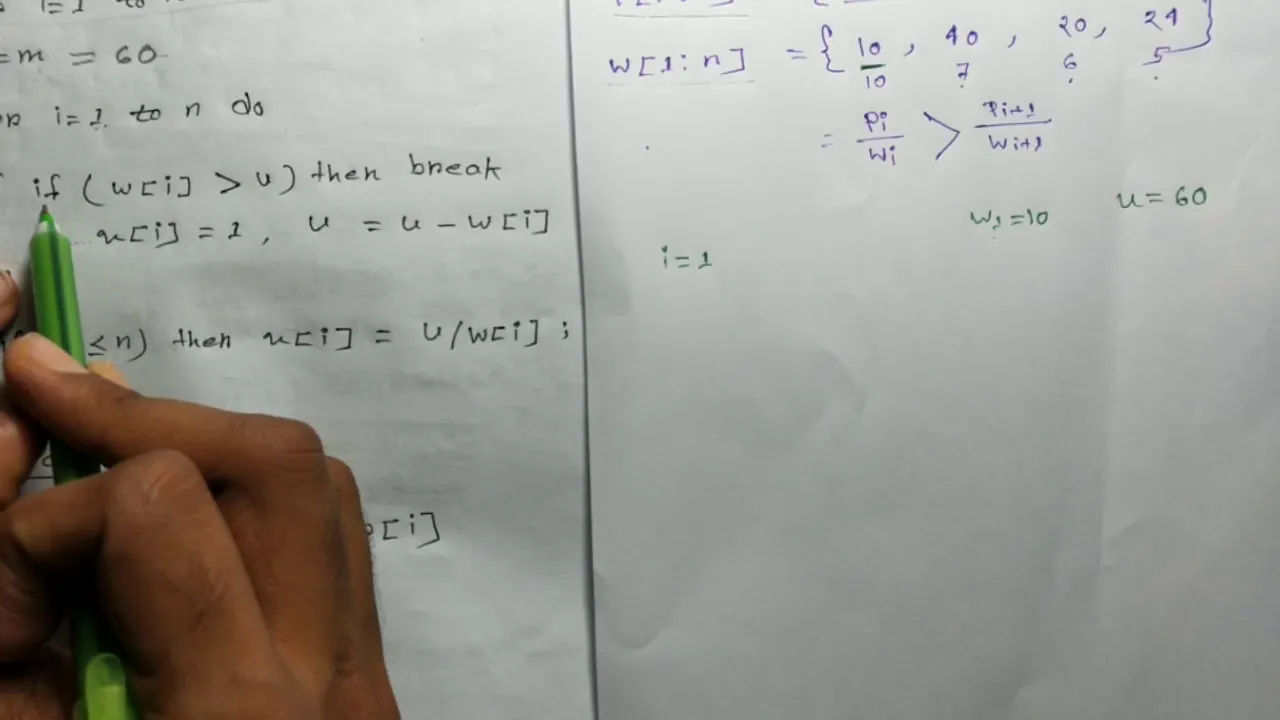 i=1 to
=m = 60
i=1 to n do
if (w[i] > u) then break
x[i] = 1, u = u - w[i]
≤n) then x[i] = U/w[i] ;
[i]
w[1:n] = { 10, 40, 20, 24 }
10 7 6 5
= Pi/Wi > Pi+1/Wi+1
w1=10 u = 60
i=1